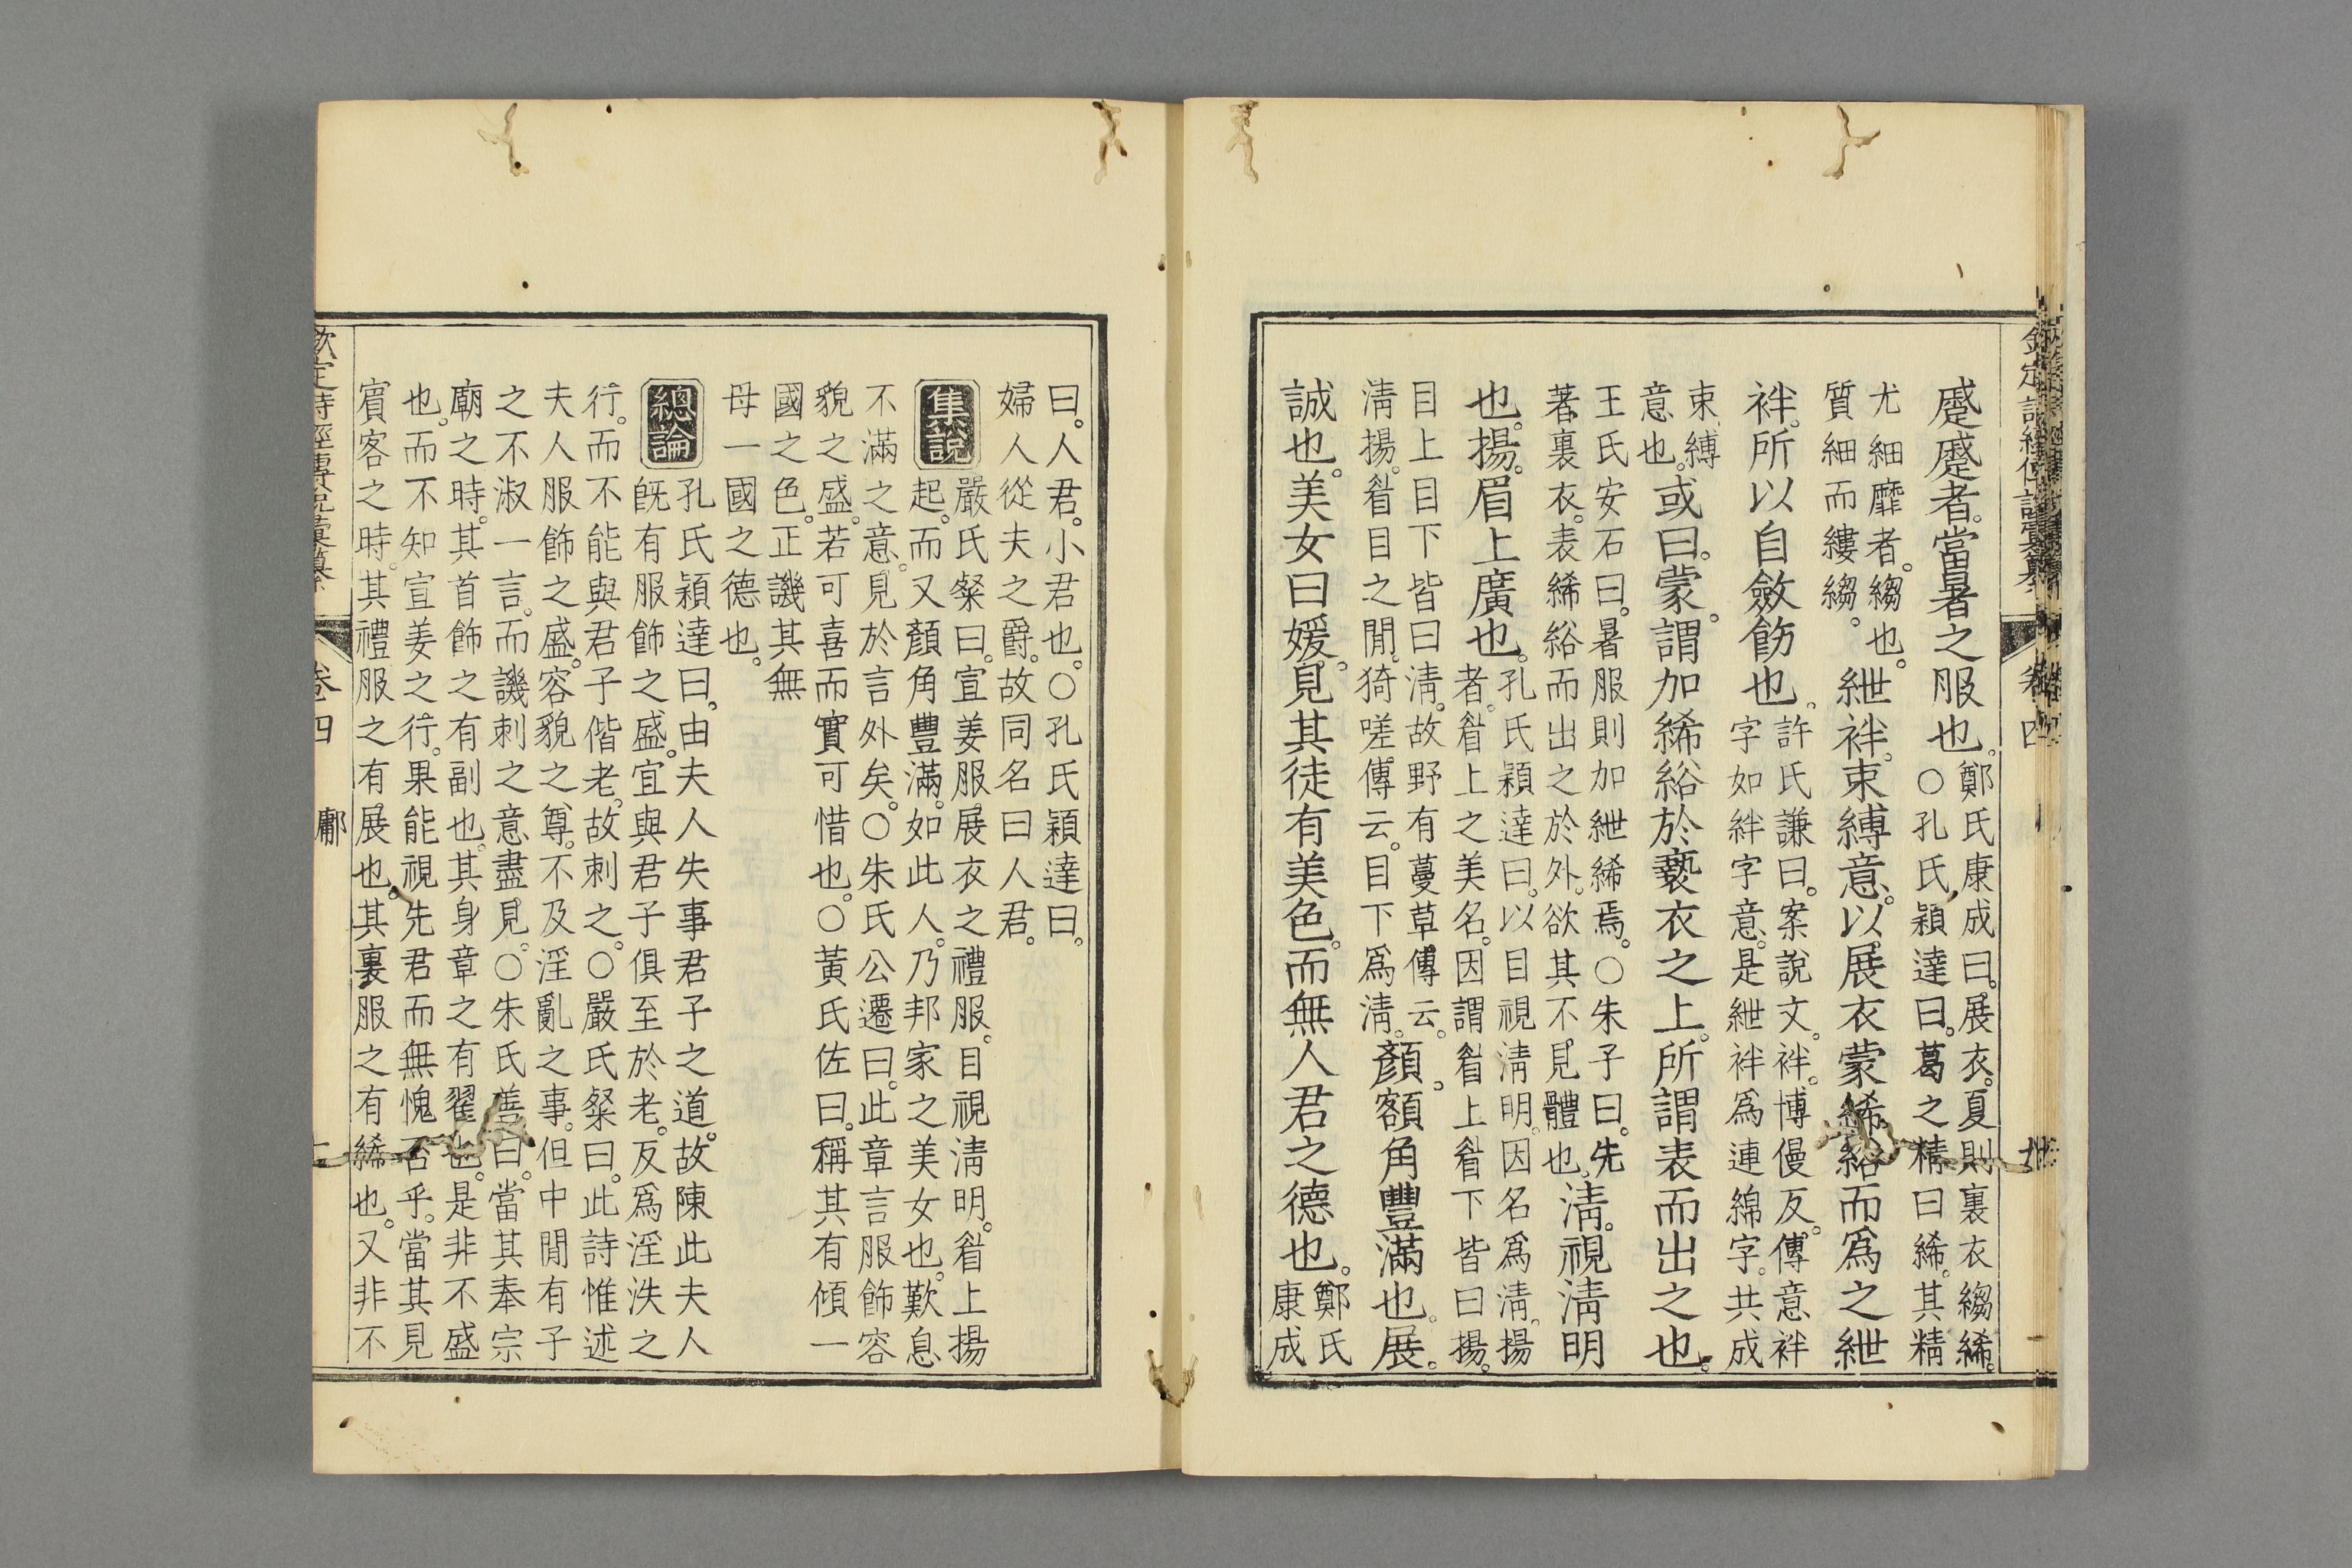 蹙蹙者。當暑之服也。鄭氏康成曰。展衣。夏則裏衣縐絺。
○孔氏穎達曰。葛之精曰絺。其精
尤細靡者。縐也。
質細而縷縐。紲袢。束縛意。以展衣蒙絺綌而爲之紲
袢。所以自斂飭也。許氏謙曰。案說文。袢。博僈反。傳意袢
字如絆字意。是紲袢爲連綿字。共成
束縛
意也。或曰。蒙。謂加絺綌於褻衣之上。所謂表而出之也。
王氏安石曰。暑服則加紲絺焉。○朱子曰。先
著裏衣。表絺綌而出之於外。欲其不見體也。淸。視淸明
也。揚。眉上廣也。孔氏穎達曰。以目視淸明。因名爲淸。揚
者。眉上之美名。因謂眉上眉下皆曰揚。
目上目下皆曰淸。故野有蔓草傳云。
淸揚。眉目之閒。猗嗟傳云。目下爲淸。顏。額角豐滿也。展。
誠也。美女曰媛。見其徒有美色。而無人君之德也。鄭氏
康成
欽定詩經傳說彙纂
卷四
曰。人君。小君也。○孔氏穎達曰。
婦人從夫之爵。故同名曰人君。
集說 嚴氏粲曰。宣姜服展衣之禮服。目視淸明。眉上揚
起。而又顏角豐滿。如此人。乃邦家之美女也。歎息
不滿之意。見於言外矣。○朱氏公遷曰。此章言服飾容
貌之盛。若可喜而實可惜也。○黃氏佐曰。稱其有傾一
國之色。正譏其無
母一國之德也。
總論 孔氏穎達曰。由夫人失事君子之道。故陳此夫人
旣有服飾之盛。宜與君子俱至於老。反爲淫泆之
行。而不能與君子偕老。故刺之。○嚴氏粲曰。此詩惟述
夫人服飾之盛。容貌之尊。不及淫亂之事。但中閒有子
之不淑一言。而譏刺之意盡見。○朱氏善曰。當其奉宗
廟之時。其首飾之有副也。其身章之有翟也。是非不盛
也。而不知宣姜之行。果能視先君而無愧否乎。當其見
賓客之時。其禮服之有展也。其裏服之有絺也。又非不
欽定詩經傳說彙纂 卷四 鄘